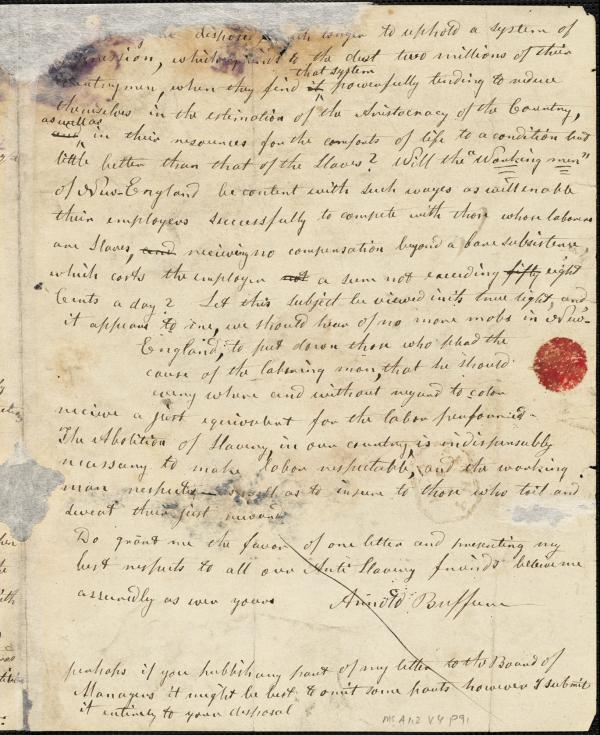 be dispose longer to uphold a system of
oppression, which grinds to the dust two millions of their
countrymen, when they find it that system powerfully tending to reduce
themselves in the estimation of the Aristocracy of the Country,
and as well as in their resources for the comforts of life to a condition but
little better than that of the Slaves? Will the "Working men"
of New-England be content with such wages as will enable
their employers successfully to compete with those whose laborers
are Slaves, and recieving no compensation beyond a bare subsistence,
which costs the employer not a sum not exceeding fifty eight
Cents a day? Let this subject be viewed in its true light, and
it appears to me, we should hear of no more mobs in New-
England, to put down those who plead the
cause of the laboring man, that he should
every where and without regard to color
recieve a just equivalent for the labor performed.
The Abolition of Slavery in our country is indispensably
necessary to make labor respectable, and the working
man respected as well as to insure to those who toil and
sweat their just reward
Do grant me the favor of one letter and presenting my
best respects to all our Anti Slavery friends believe me
assuredly as ever yours Arnold Buffum
perhaps if you publish any part of my letter to the Board of
Managers it might be best to omit some parts however I submit
it entirely to your disposal
Ms.A.1.2 V4 P91